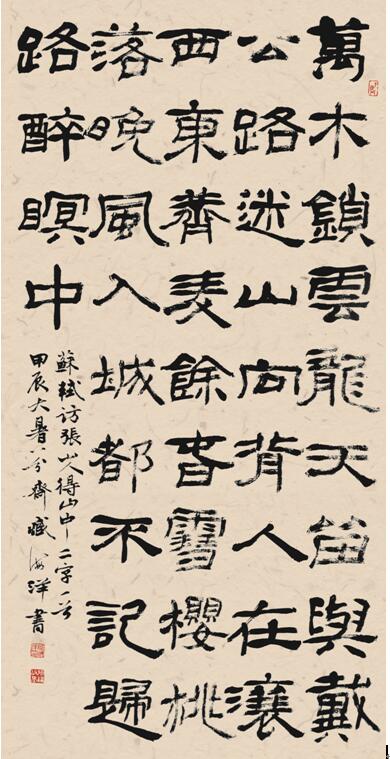 萬木鎖雲龍天留與戴
公路迷山向背人在瀼
西東薺麦餘春雪櫻桃
落晚風入城都不記歸
路醉瞑中
蘇軾访張山人得山中二字一首
甲辰大暑八分齋臧海洋書